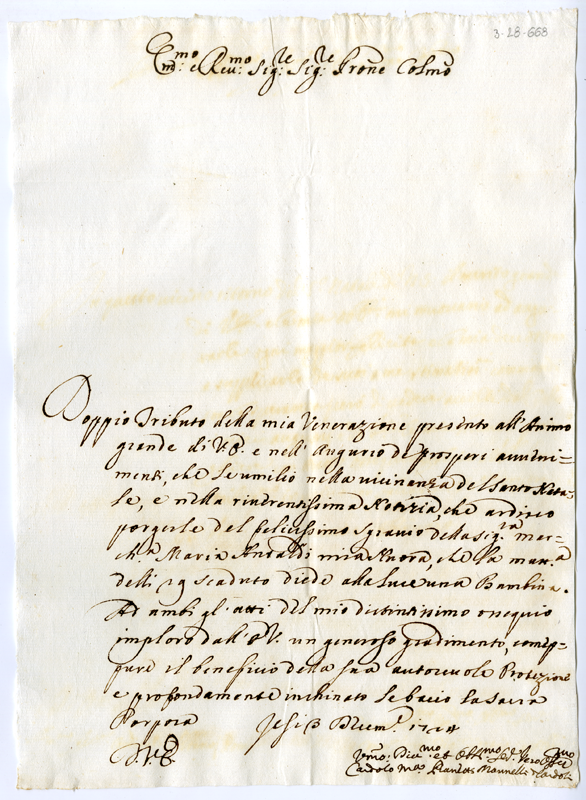 3-28-668
Em:mo e Rev:mo Sig:re Sig:re Prone Colmo
Doppio Tributo della mia Venerazione presento all'Animo
grande di V.E. e nell'Augurio de prosperi avveni-
menti, che Le umilio nella vicinanza del Santo Nata-
le, e nella riverentissima Notizia, che ardisco
porgerle del felicissimo sgravio della Sig.ra Mar-
ch.a Maria mia Nuora, che la matt.a
delli 29 scaduto diede alla luce una Bambina.
Ad ambi gl'atti del mio distintissimo ossequio
imploro dall'E.V. un generoso gradimento, comep-
pure il beneficio della sua autorevole Protezione
e profondamente inchinato le bacio la Sacra
Porpora Jesi Xbre 1714
D.V.E.
Um:o Div:mo et Obb:mo Ser.
Cardolo